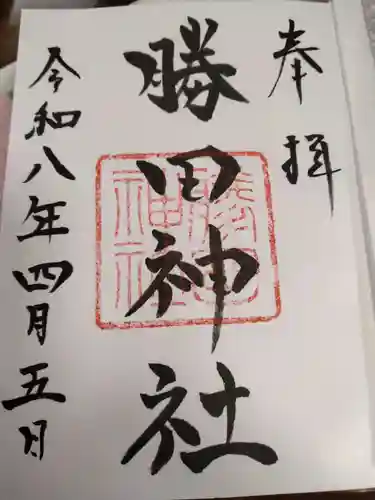 奉拝
勝田神社
勝田
神社
令和八年四月五月